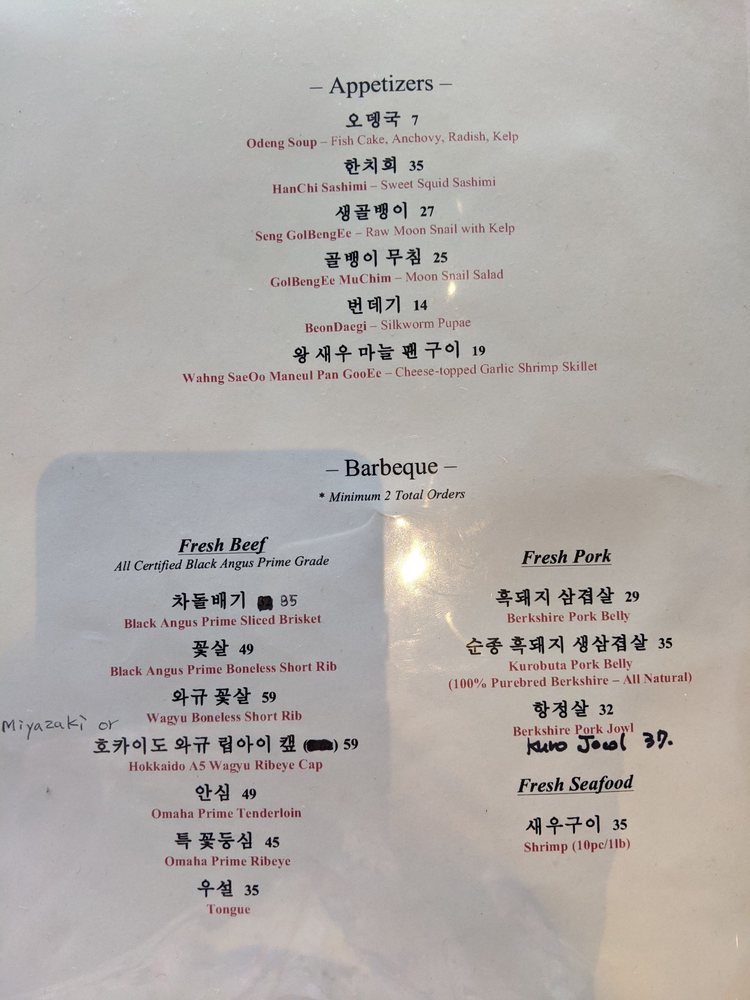 – Appetizers –
오뎅국 7
Odeng Soup – Fish Cake, Anchovy, Radish, Kelp
한치회 35
HanChi Sashimi – Sweet Squid Sashimi
생골뱅이 27
Seng GolBengEe – Raw Moon Snail with Kelp
골뱅이 무침 25
GolBengEe MuChim – Moon Snail Salad
번데기 14
BeonDaegi – Silkworm Pupae
왕 새우 마늘 팬 구이 19
Wahng SaeOo Maneul Pan GooEe – Cheese-topped Garlic Shrimp Skillet
– Barbeque –
* Minimum 2 Total Orders
Fresh Beef
All Certified Black Angus Prime Grade
차돌배기 35
Black Angus Prime Sliced Brisket
꽃살 49
Black Angus Prime Boneless Short Rib
와규 꽃살 59
Wagyu Boneless Short Rib
Miyazaki or
호카이도 와규 립아이 캪 ( ) 59
Hokkaido A5 Wagyu Ribeye Cap
안심 49
Omaha Prime Tenderloin
특 꽃등심 45
Omaha Prime Ribeye
우설 35
Tongue
Fresh Pork
흑돼지 삼겹살 29
Berkshire Pork Belly
순종 흑돼지 생삼겹살 35
Kurobuta Pork Belly
(100% Purebred Berkshire – All Natural)
항정살 32
Berkshire Pork Jowl
Kuro Jowl 37.
Fresh Seafood
새우구이 35
Shrimp (10pc/1lb)